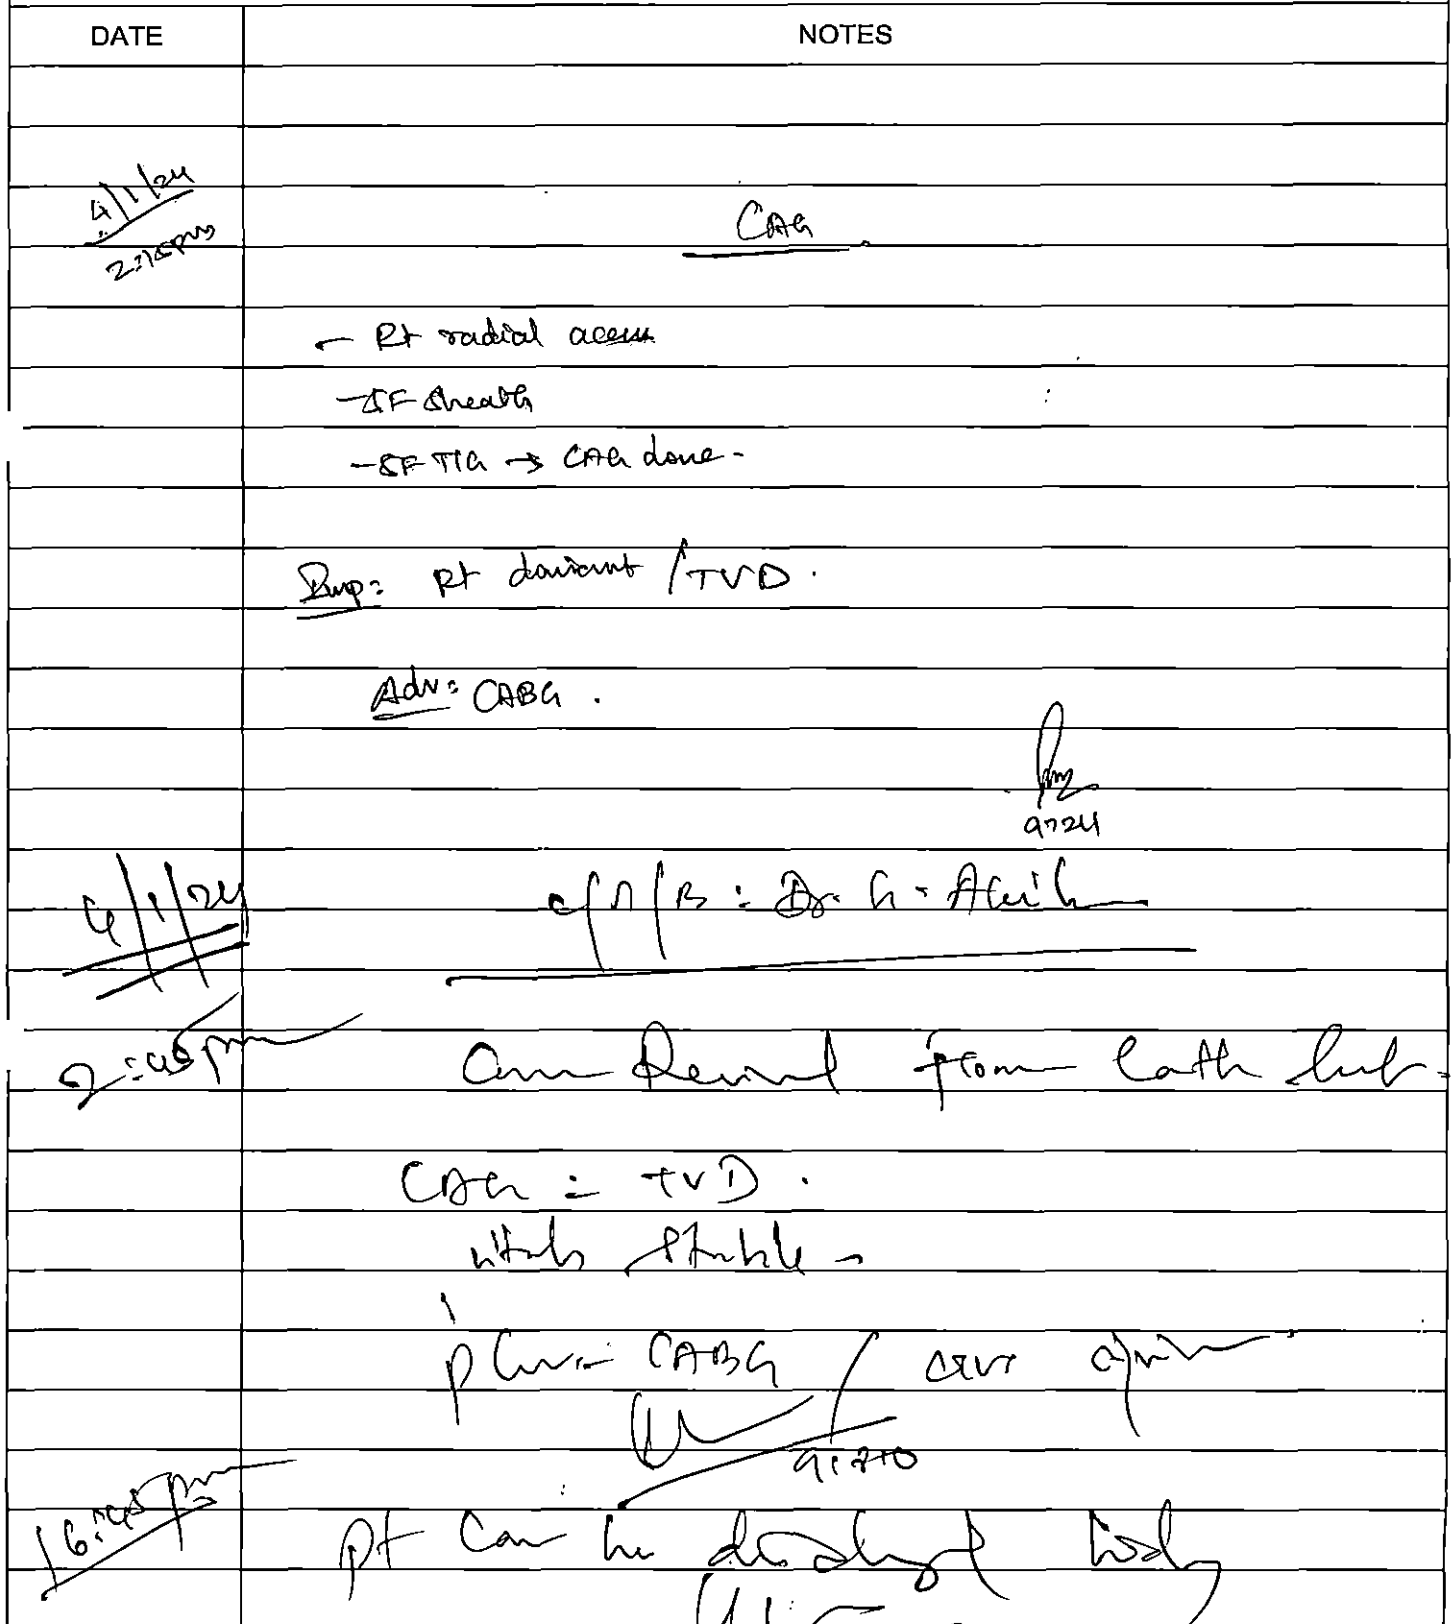 DATE NOTES
4/1/24
2:15pm
CAG
- Rt radial access
- 5F sheath
- 5F TIG → CAG done -
Imp: Rt dominant / TVD .
Adv: CABG .
9724
4/1/24 c/s/B : Dr. G -
2:45 pm Received from Cath lab -
CAG : TVD .
vitals stable -
plan:- CABG / CTVS opinion
16:45 pm pt can be discharged today